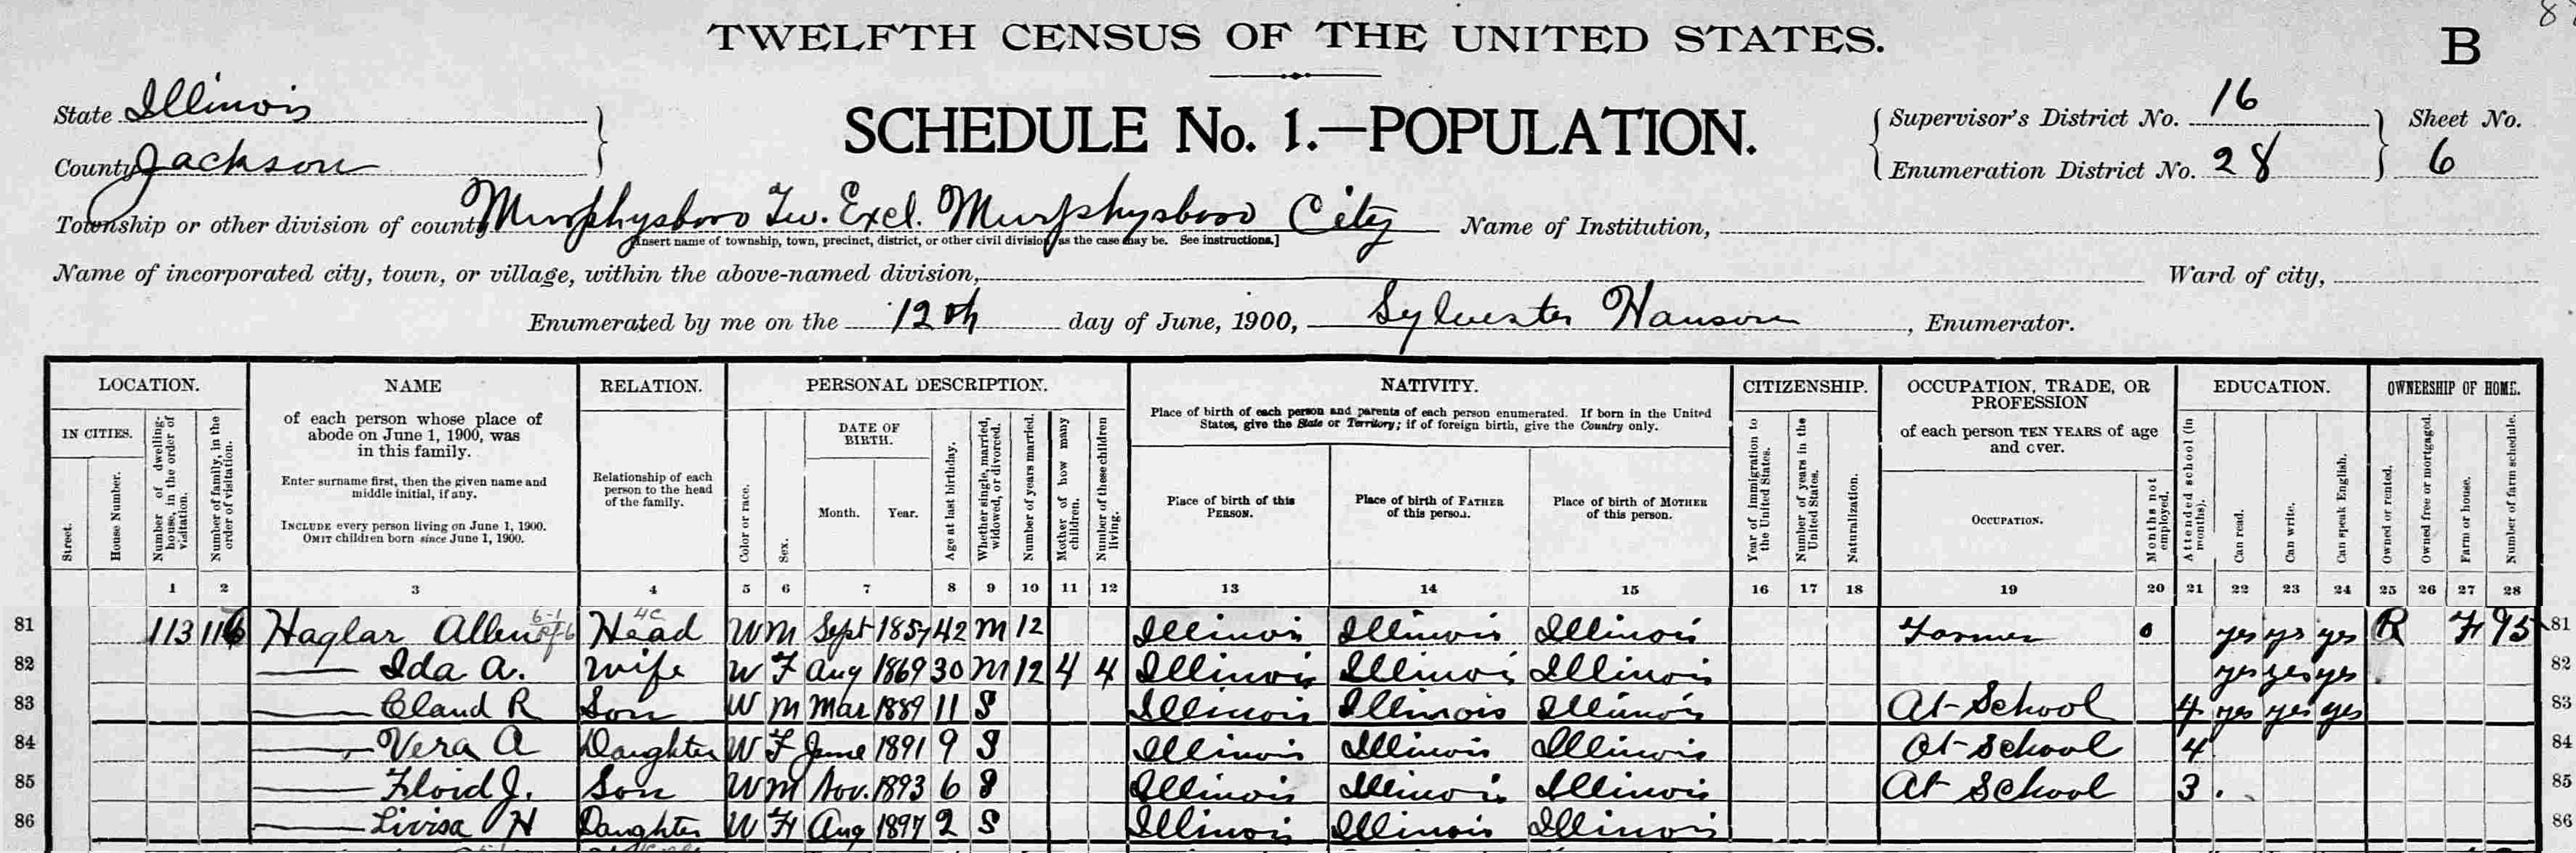 TWELFTH CENSUS OF THE UNITED STATES.
B
State Illinois
County Jackson
SCHEDULE No. 1.—POPULATION.
Supervisor's District No. 16
Enumeration District No. 28
Sheet No.
6
Township or other division of county Murphysboro Tw. Excl. Murphysboro City Name of Institution,
[Insert name of township, town, precinct, district, or other civil division, as the case may be. See instructions.]
Name of incorporated city, town, or village, within the above-named division, Ward of city,
Enumerated by me on the 12th day of June, 1900, Sylvester Hanson, Enumerator.
LOCATION. NAME RELATION. PERSONAL DESCRIPTION. NATIVITY. CITIZENSHIP. OCCUPATION, TRADE, OR PROFESSION EDUCATION. OWNERSHIP OF HOME.
IN CITIES.
Street.
House Number.
Number of dwelling-house, in the order of visitation.
Number of family, in the order of visitation.
of each person whose place of abode on June 1, 1900, was in this family.
Enter surname first, then the given name and middle initial, if any.
INCLUDE every person living on June 1, 1900.
OMIT children born since June 1, 1900.
Relationship of each person to the head of the family.
Color or race.
Sex.
DATE OF BIRTH.
Month. Year.
Age at last birthday.
Whether single, married, widowed, or divorced.
Number of years married.
Mother of how many children.
Number of these children living.
Place of birth of each person and parents of each person enumerated. If born in the United States, give the State or Territory; if of foreign birth, give the Country only.
Place of birth of this PERSON.
Place of birth of FATHER of this person.
Place of birth of MOTHER of this person.
Year of immigration to the United States.
Number of years in the United States.
Naturalization.
of each person TEN YEARS of age and over.
OCCUPATION.
Months not employed.
Attended school (in months).
Can read.
Can write.
Can speak English.
Owned or rented.
Owned free or mortgaged.
Farm or house.
Number of farm schedule.
1 2 3 4 5 6 7 8 9 10 11 12 13 14 15 16 17 18 19 20 21 22 23 24 25 26 27 28
81 113 116 Haglar Allen Head W M Sept 1857 42 M 12 Illinois Illinois Illinois Farmer 0 yes yes yes R F 95 81
82 — Ida A. Wife W F Aug 1869 30 M 12 4 4 Illinois Illinois Illinois yes yes yes 82
83 — Claud R Son W M Mar 1889 11 S Illinois Illinois Illinois At School 4 yes yes yes 83
84 — Vera A Daughter W F June 1891 9 S Illinois Illinois Illinois At School 4 84
85 — Floid J. Son W M Nov. 1893 6 S Illinois Illinois Illinois At School 3 85
86 — Livisa H Daughter W F Aug 1897 2 S Illinois Illinois Illinois 86